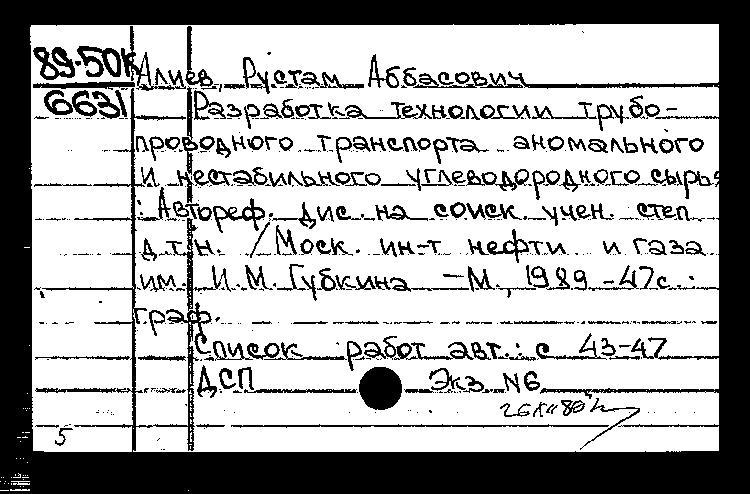 89-50к
6631
Алиев, Рустам Аббасович
Разработка технологии трубо-
проводного транспорта аномального
и нестабильного углеводородного сырья
: Автореф. дис. на соиск. учен. степ
д.т.н. / Моск. ин-т нефти и газа
им. И.М. Губкина -М., 1989 -47с. :
граф.
Список работ авт.: с 43-47
ДСП Экз. N6
5